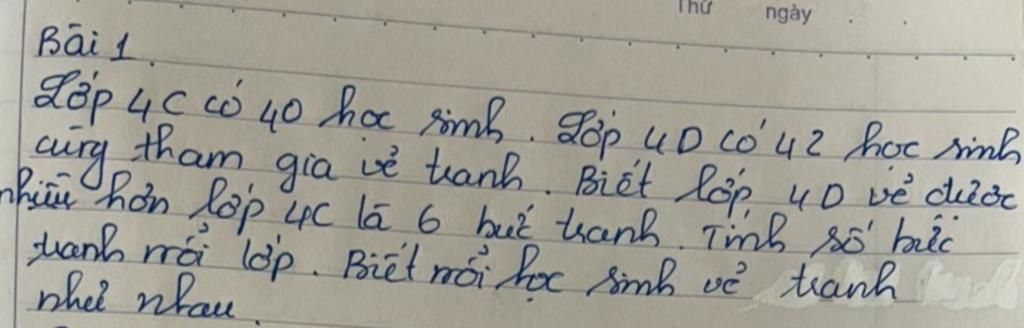 Thứ ngày
Bài 1
Lớp 4C có 40 học sinh. Lớp 4D có 42 học sinh
cùng tham gia vẽ tranh. Biết lớp 4D vẽ được
nhiều hơn lớp 4C là 6 bức tranh. Tính số bức
tranh mỗi lớp. Biết mỗi học sinh vẽ tranh
như nhau.